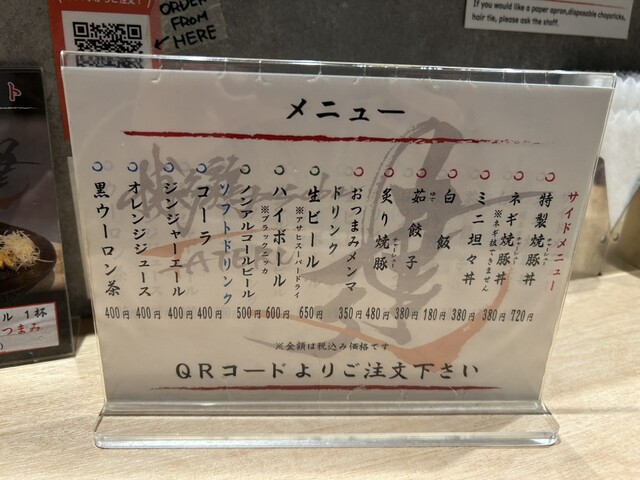 ORDER
FROM
HERE
If you would like a paper apron,disposable chopsticks,
hair tie, please ask the staff.
メニュー
サイドメニュー
特製焼豚丼 720円
ネギ焼豚丼 380円
※ネギ抜きできません
ミニ坦々丼 380円
白飯 180円
茹餃子 380円
炙り焼豚 480円
おつまみメンマ 350円
ドリンク
生ビール 650円
※アサヒスーパードライ
ハイボール 600円
※ブラックニッカ
ノンアルコールビール 500円
ソフトドリンク
コーラ 400円
ジンジャーエール 400円
オレンジジュース 400円
黒ウーロン茶 400円
※金額は税込み価格です
QRコードよりご注文下さい
ル 1杯
つまみ